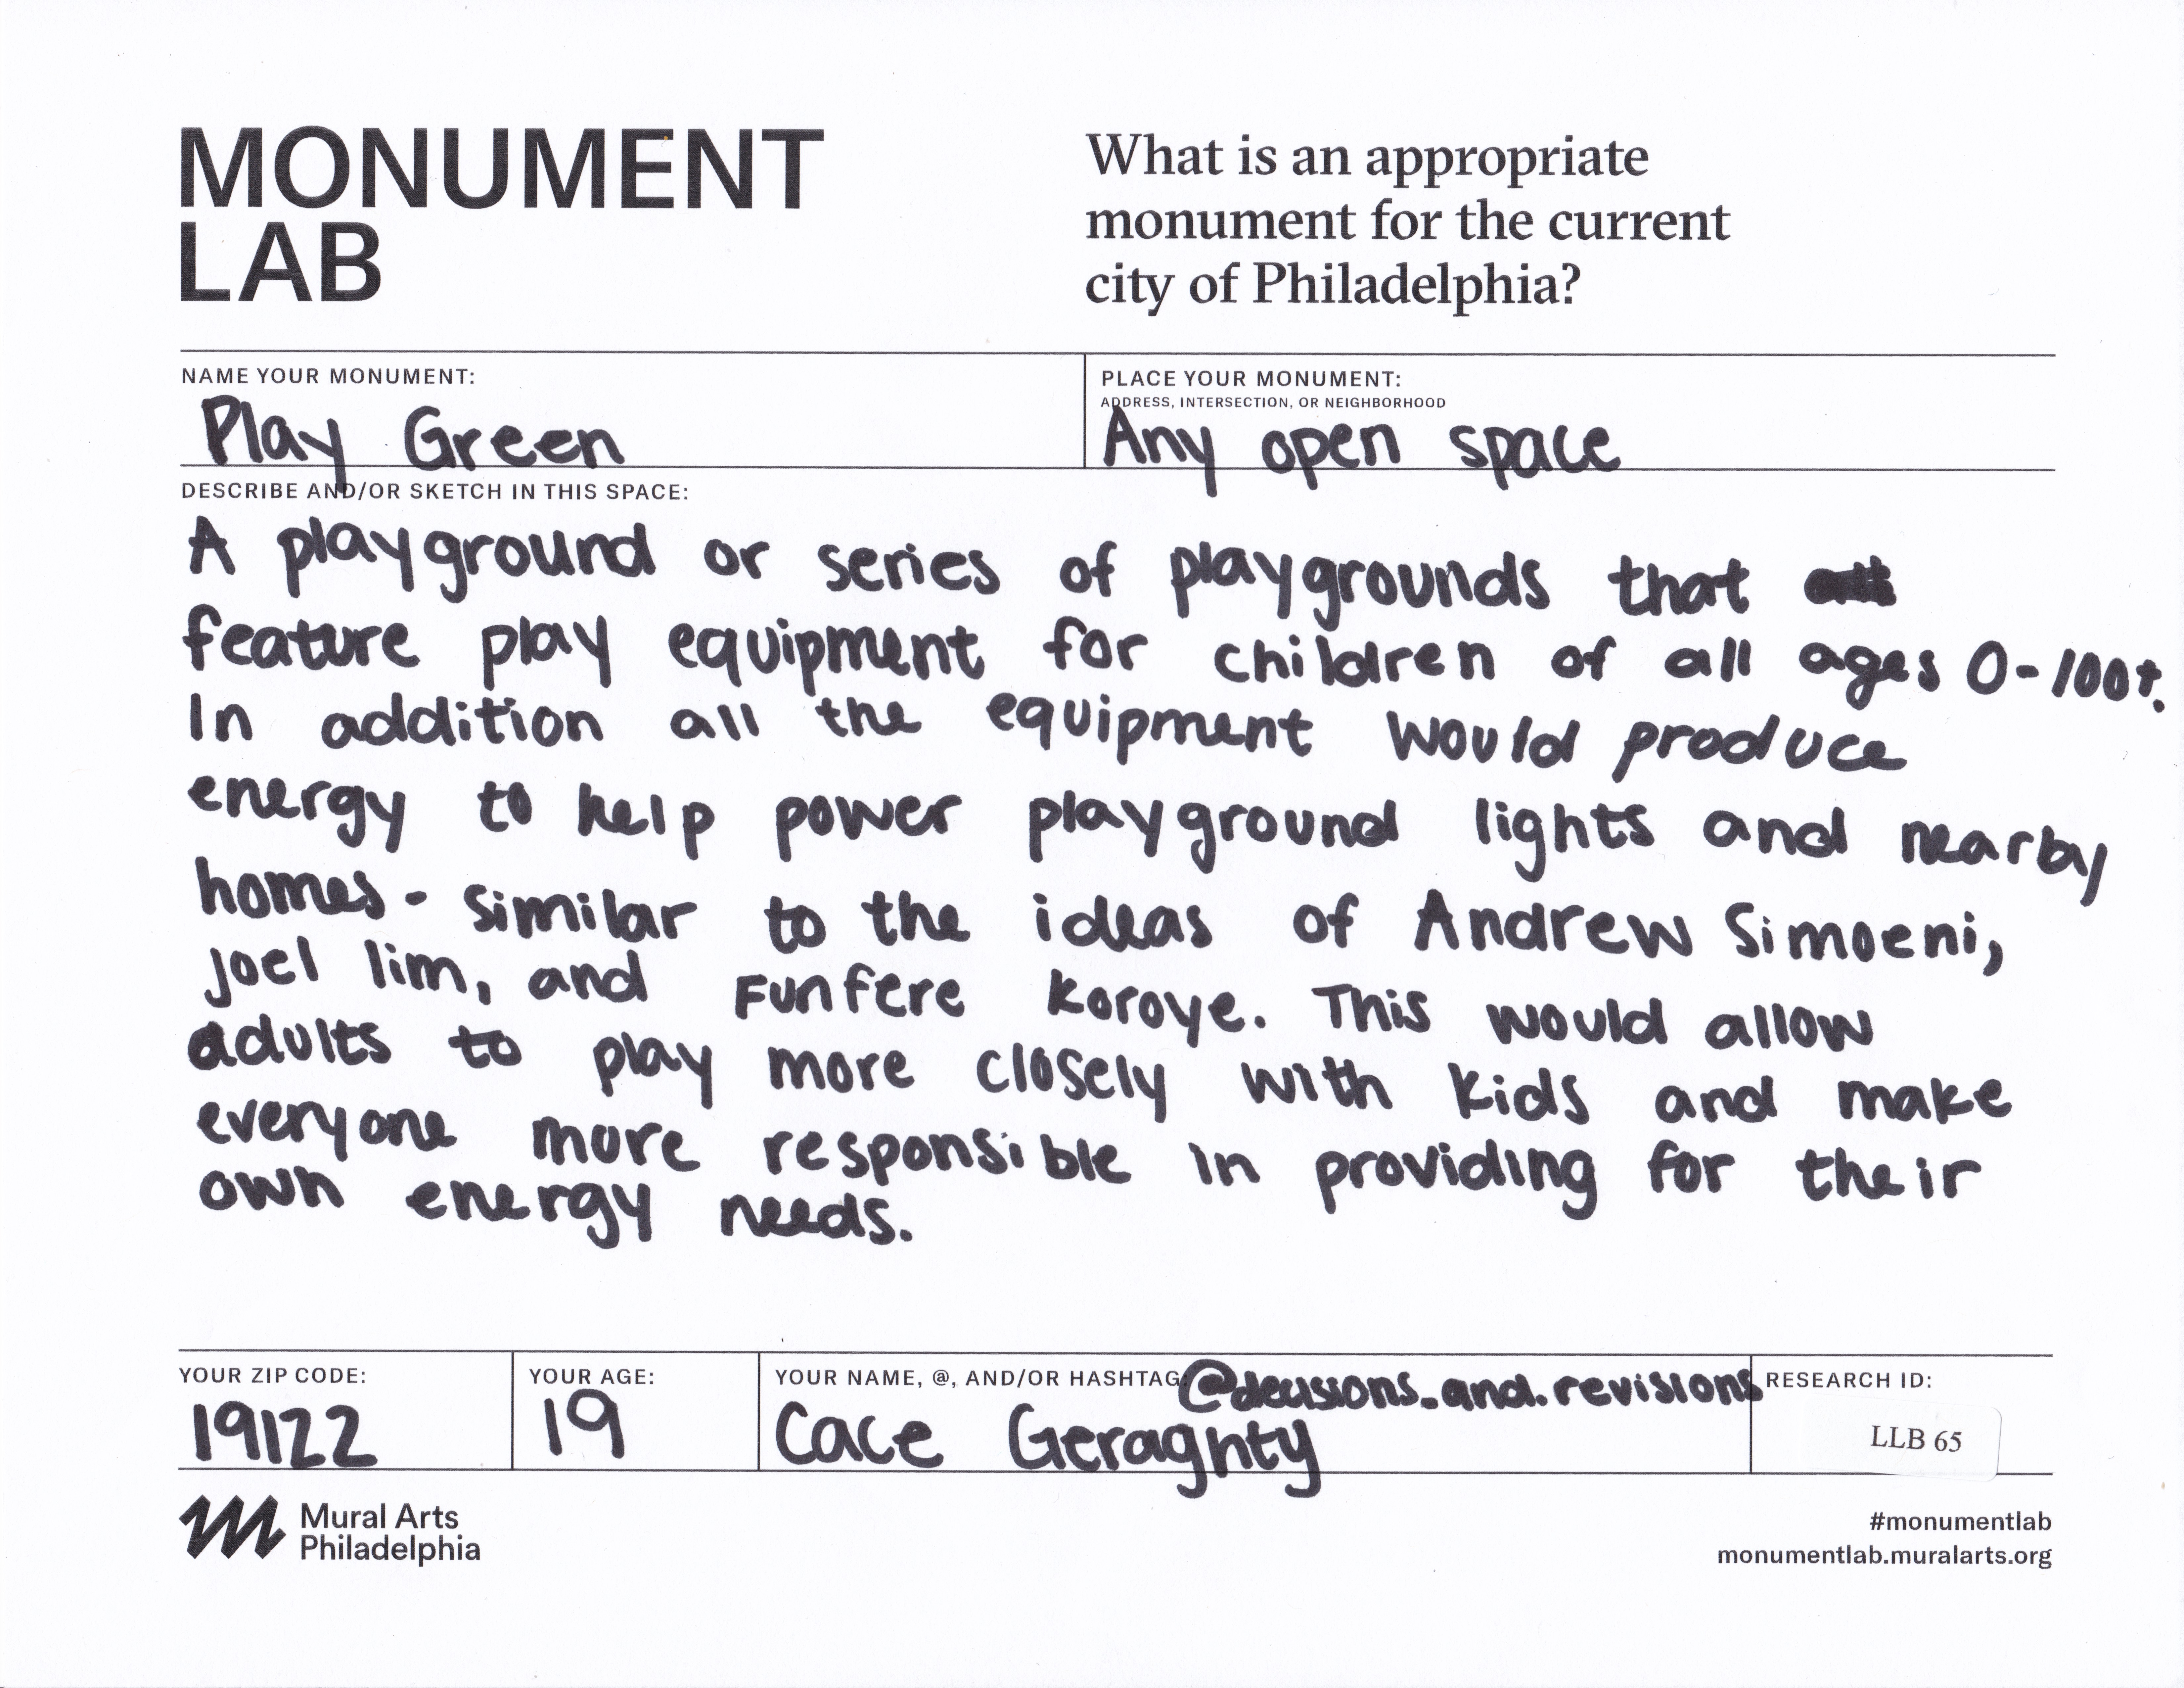 MONUMENT
LAB
What is an appropriate
monument for the current
city of Philadelphia?
NAME YOUR MONUMENT:
Play Green
PLACE YOUR MONUMENT:
ADDRESS, INTERSECTION, OR NEIGHBORHOOD
Any open space
DESCRIBE AND/OR SKETCH IN THIS SPACE:
A playground or series of playgrounds that
feature play equipment for children of all ages 0-100+.
In addition all the equipment would produce
energy to help power playground lights and nearby
homes - similar to the ideas of Andrew Simoeni,
Joel lim, and Funfere Koroye. This would allow
adults to play more closely with kids and make
everyone more responsible in providing for their
own energy needs.
YOUR ZIP CODE:
19122
YOUR AGE:
19
YOUR NAME, @, AND/OR HASHTAG:
@decisions.and.revisions
Cace Geraghty
RESEARCH ID:
LLB 65
Mural Arts
Philadelphia
#monumentlab
monumentlab.muralarts.org